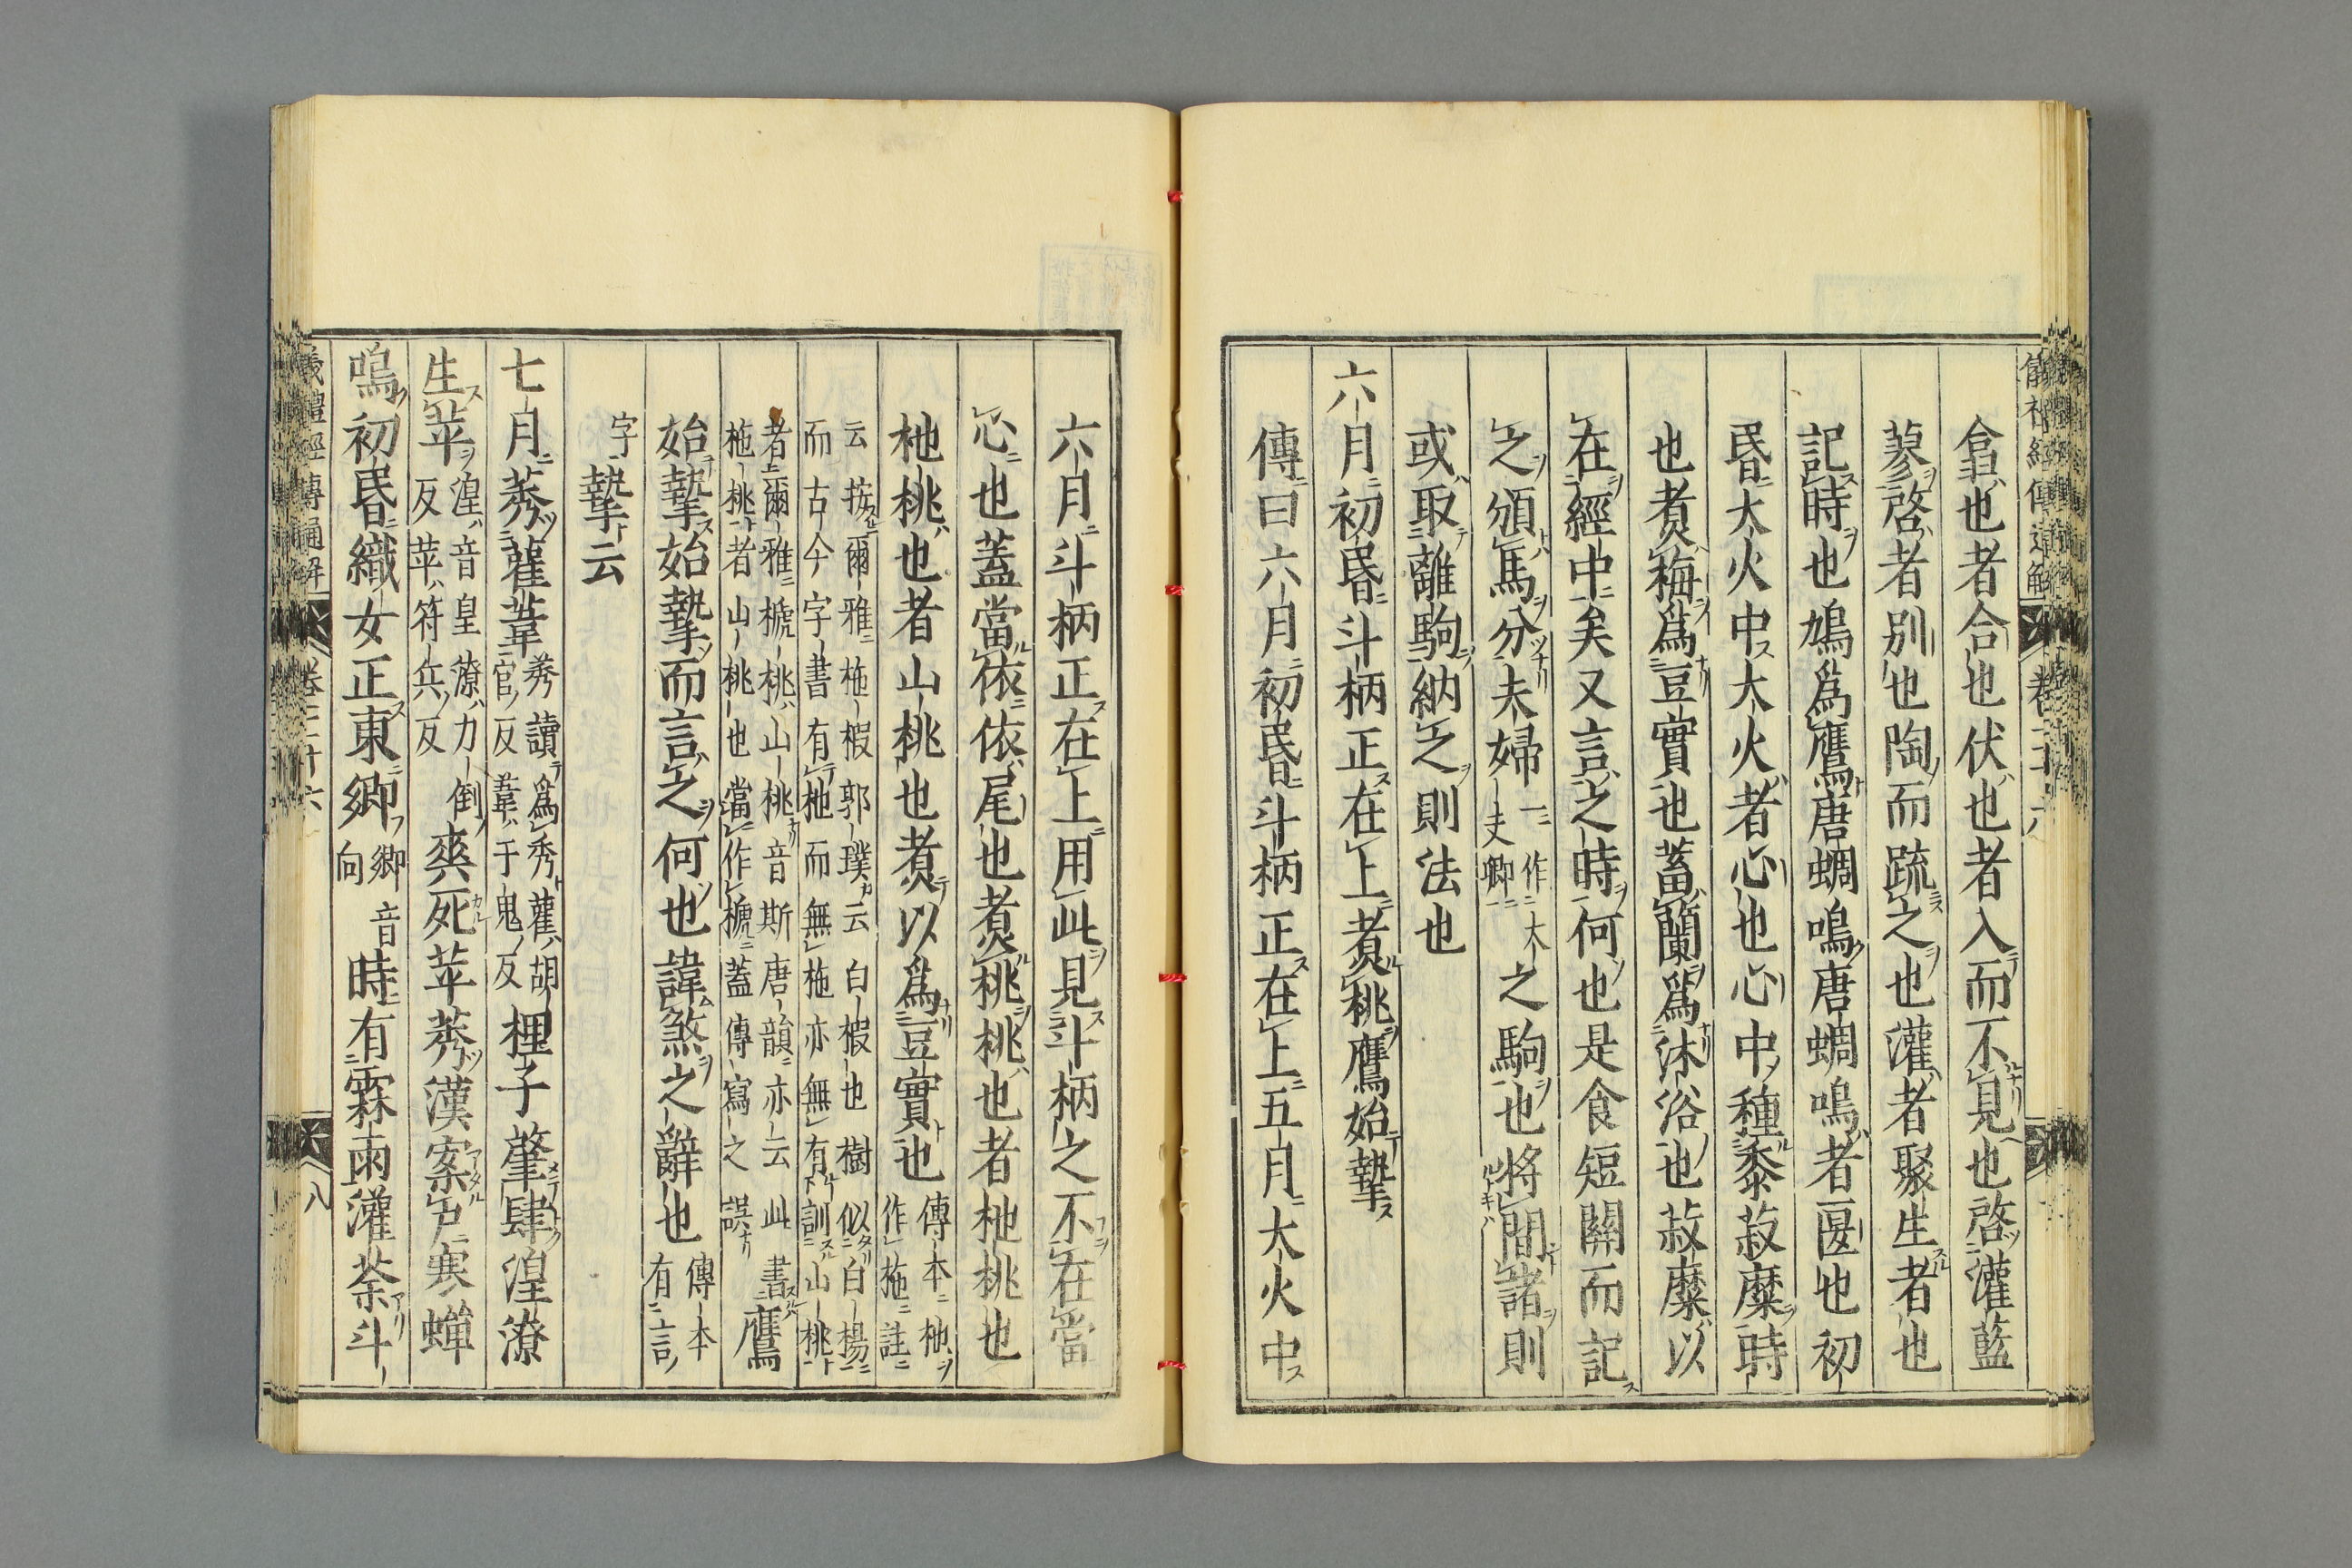 儀禮經傳通解 卷二十六
翕也者合也伏也者入而不見也啓灌藍
蓼啓者別也陶而疏之也灌者聚生者也
記時也鳩爲鷹唐蜩鳴唐蜩鳴者匽也初
昏大火中大火者心也心中種黍菽糜時
也煑梅爲豆實也蓄蘭爲沐浴也菽糜以
在經中矣又言之時何也是食短關而記
之頒馬分夫婦一作大夫卿之駒也將閒諸則
或取離駒納之則法也
六月初昏斗柄正在上煑桃鷹始摯
傳曰六月初昏斗柄正在上五月大火中
六月斗柄正在上用此見斗柄之不在當
心也蓋當依依尾也煑桃桃也者杝桃也
杝桃也者山桃也煑以爲豆實也傳本杝作㭠註
云按爾雅㭠椵郭璞云白椵也樹似白楊
而古今字書有杝而無㭠亦無有訓山桃
者爾雅榹桃山桃音斯唐韻亦云此書
㭠桃者山桃也當作榹蓋傳寫之誤鷹
始摯始摯而言之何也諱煞之辭也傳本有言
字摯云
七月莠雚葦莠讀爲秀雚胡官反葦于鬼反狸子肇肆湟潦
生苹湟音皇潦力倒反苹符兵反爽死苹莠漢案戶寒蟬
鳴初昏織女正東鄉鄉音向時有霖雨灌荼斗
儀禮經傳通解 卷二十六 八